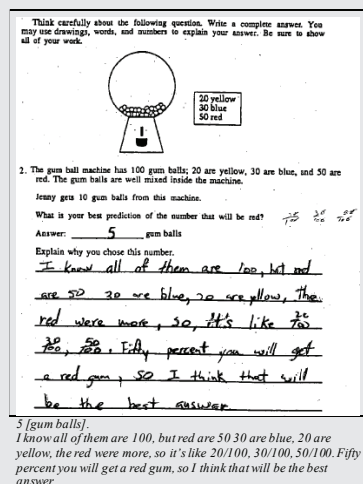 Think carefully about the following question. Write a complete answer. You
may use drawings, words, and numbers to explain your answer. Be sure to show
all of your work.
20 yellow
30 blue
50 red
2. The gum ball machine has 100 gum balls; 20 are yellow, 30 are blue, and 50 are
red. The gum balls are well mixed inside the machine.
Jenny gets 10 gum balls from this machine.
What is your best prediction of the number that will be red? 20/100 30/100 50/100
Answer: 5 gum balls
Explain why you chose this number.
I know all of them are 100, but red
are 50 30 are blue, 20 are yllow, the
red were more, so, it's like 20/100
30/100, 50/100. Fifty percent you will get
a red gum, so I think that will
be the best answer
5 [gum balls].
I know all of them are 100, but red are 50 30 are blue, 20 are
yellow, the red were more, so it's like 20/100, 30/100, 50/100. Fifty
percent you will get a red gum, so I think that will be the best
answer